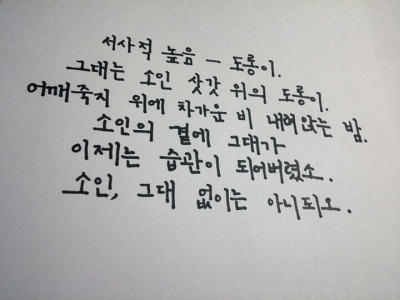 서사적 높음 - 도롱이.
그대는 소인 삿갓 위의 도롱이.
어깨죽지 위에 차가운 비 내려앉는 밤.
소인의 곁에 그대가
이제는 습관이 되어버렸소.
소인, 그대 없이는 아니되오.